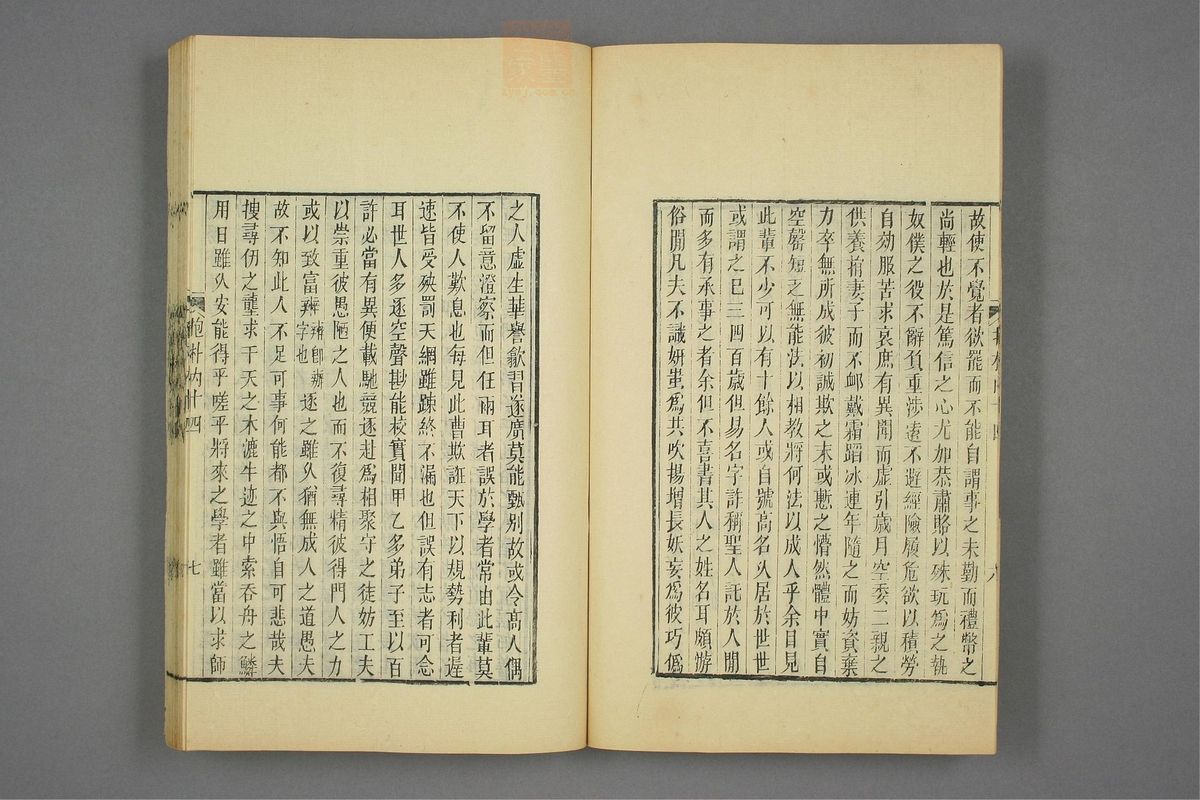 故使不覺者欲罷而不能自謂事之未勤而禮幣之
尚輕也於是篤信之心尤加恭肅賂以殊玩爲之執
奴僕之役不辭負重涉遠不避經險履危欲以積勞
自効服苦求哀庶有異聞而虛引歲月空委二親之
供養捐妻子而不䘏戴霜蹈冰連年隨之而妨資棄
力卒無所成彼初誠欺之末或慙之懵然體中實自
空罄短乏無能法以相教將何法以成人乎余目見
此輩不少可以有十餘人或自號高名久居於世世
或謂之已三四百歲但易名字詐稱聖人託於人間
而多有承事之者余但不喜書其人之姓名耳頗游
俗間凡夫不識妍蚩爲共吹揚增長妖妄爲彼巧僞
之人虛生華譽歙習遂廣莫能甄別故或令高人偶
不留意澄察而但任兩耳者誤於學者常由此輩莫
不使人歎息也每見此曹欺誑天下以規勢利者遲
速皆受殃罰天網雖踈終不漏也但誤有志者可念
耳世人多逐空聲尠能校實聞甲乙多弟子至以百
許必當有異便載馳競逐赴爲相聚守之徒妨工夫
以崇重彼愚陋之人也而不復尋精彼得門人之力
或以致富辨辨卽辦字也逐之雖久猶無成人之道愚夫
故不知此人不足可事何能都不與悟自可悲哉夫
搜尋仞之壟求干天之木漉牛迹之中索吞舟之鱗
用日雖久安能得乎嗟乎將來之學者雖當以求師
抱朴内十四
七